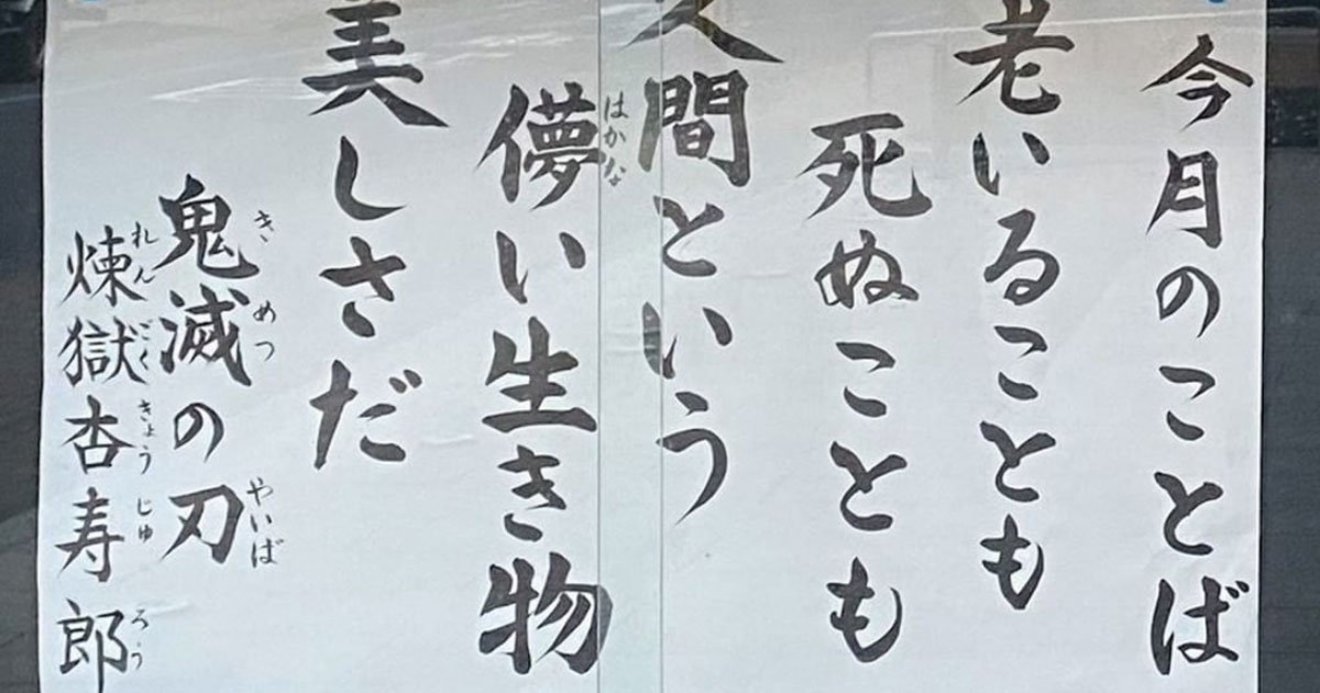 今月のことば
老いることも
死ぬことも
人間という
儚い生き物
はかな
美しさだ
鬼滅の刃
きめつ
やいば
煉獄杏寿郎
れんごくきょうじゅろう